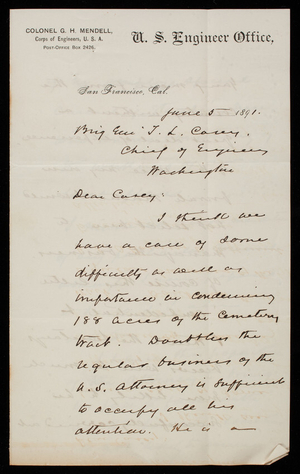 COLONEL G. H. MENDELL,
Corps of Engineers, U. S. A.
POST-OFFICE BOX 2426.
U. S. Engineer Office,
San Francisco, Cal.
June 5 1891.
Brig Gen T. L. Casey,
Chief of Engineers
Washington
Dear Casey:
I think we
have a case of some
difficulty as well as
importance in condemning
188 acres of the Cemetery
tract. Doubtless the
regular business of the
U.S. Attorney is sufficient
to occupy all his
attention. He is a